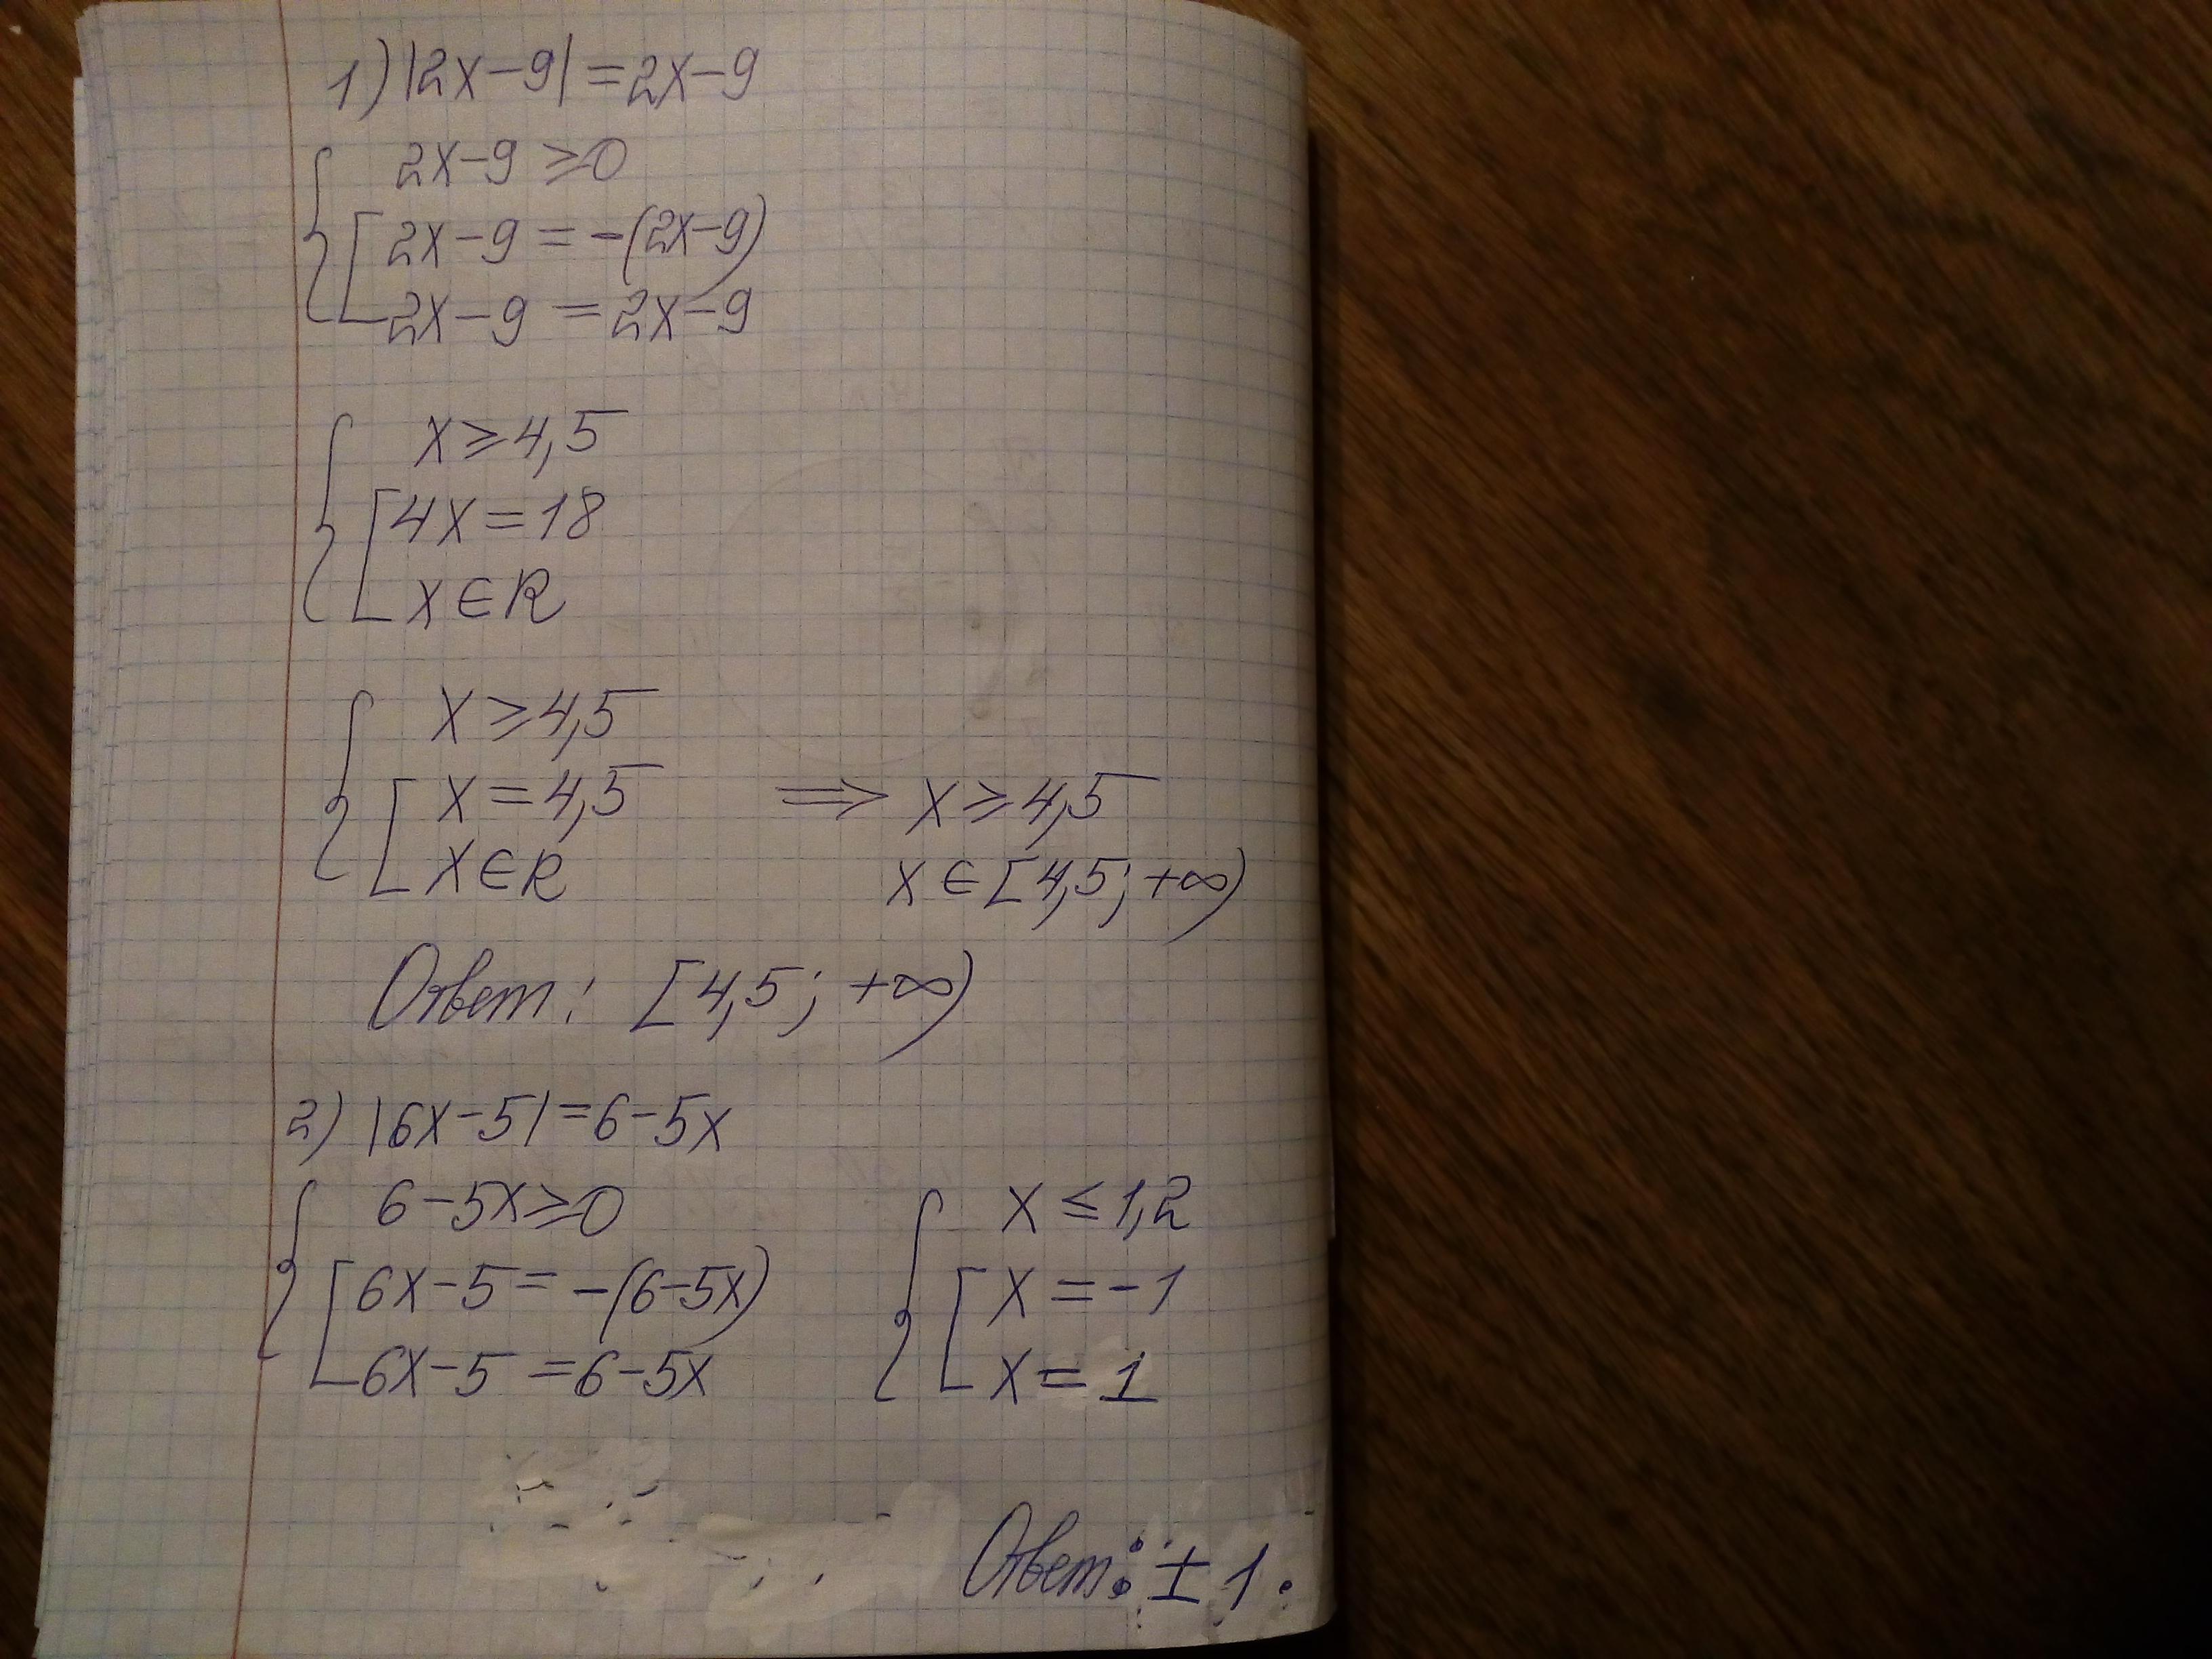 1) |2x-9| = 2x-9
2x-9 ≥ 0
2x-9 = -(2x-9)
2x-9 = 2x-9
x ≥ 4,5
4x = 18
x ∈ R
x ≥ 4,5
x = 4,5 ⟹ x ≥ 4,5
x ∈ R x ∈ [4,5; +∞)
Ответ: [4,5; +∞)
2) |6x-5| = 6-5x
6-5x ≥ 0 x ≤ 1,2
6x-5 = -(6-5x) x = -1
6x-5 = 6-5x x = 1
Ответ: ± 1.